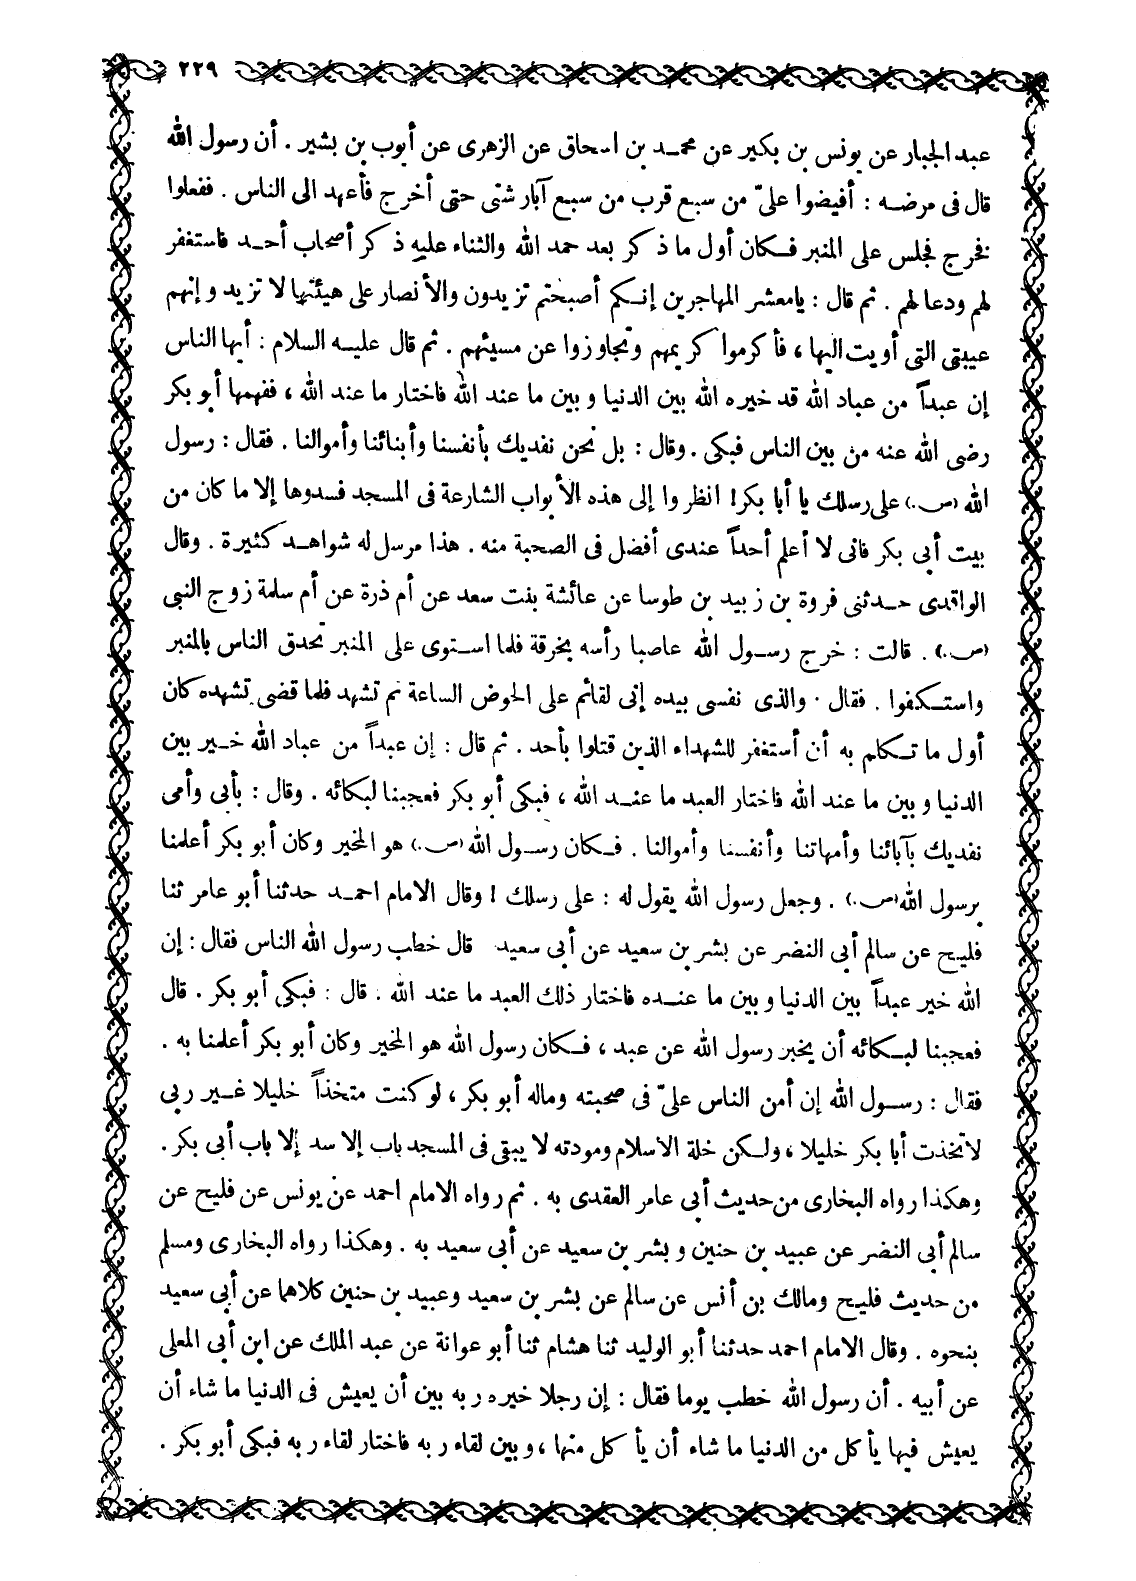 ٢٢٩
عبد الجبار عن يونس بن بكير عن محمد بن اسحاق عن الزهرى عن أيوب بن بشير . أن رسول الله
قال فى مرضه : أفيضوا علىّ من سبع قرب من سبع آبار شتى حتى أخرج فأعهد الى الناس . ففعلوا
فخرج فجلس على المنبر فكان أول ما ذكر بعد حمد الله والثناء عليه ذكر أصحاب أحد فاستغفر
لهم ودعا لهم . ثم قال : يامعشر المهاجرين إنكم أصبحتم تزيدون والأنصار على هيئتها لا تزيد وإنهم
عيبتى التى أويت اليها ، فأكرموا كريمهم وتجاوزوا عن مسيئهم . ثم قال عليه السلام : أيها الناس
إن عبداً من عباد الله قد خيره الله بين الدنيا وبين ما عند الله فاختار ما عند الله ، ففهمها أبو بكر
رضى الله عنه من بين الناس فبكى . وقال : بل نحن نفديك بأنفسنا وأبنائنا وأموالنا . فقال : رسول
الله (ص.) على رسلك يا أبا بكر! انظروا إلى هذه الأبواب الشارعة فى المسجد فسدوها إلا ما كان من
بيت أبى بكر فانى لا أعلم أحداً عندى أفضل فى الصحبة منه . هذا مرسل له شواهد كثيرة . وقال
الواقدى حدثنى فروة بن زبيد بن طوسا عن عائشة بنت سعد عن أم ذرة عن أم سلمة زوج النبى
(ص.) . قالت : خرج رسول الله عاصبا رأسه بخرقة فلما استوى على المنبر تحدق الناس بالمنبر
واستكفوا . فقال . والذى نفسى بيده إنى لقائم على الحوض الساعة ثم تشهد فلما قضى تشهده كان
أول ما تكلم به أن أستغفر للشهداء الذين قتلوا بأحد . ثم قال : إن عبداً من عباد الله خير بين
الدنيا وبين ما عند الله فاختار العبد ما عند الله ، فبكى أبو بكر فعجبنا لبكائه . وقال : بأبى وأمى
نفديك بآبائنا وأمهاتنا وأنفسنا وأموالنا . فكان رسول الله (ص.) هو المخير وكان أبو بكر أعلمنا
برسول الله (ص.) . وجعل رسول الله يقول له : على رسلك ! وقال الامام احمد حدثنا أبو عامر ثنا
فليح عن سالم أبى النضر عن بشر بن سعيد عن أبى سعيد قال خطب رسول الله الناس فقال : إن
الله خير عبداً بين الدنيا وبين ما عنده فاختار ذلك العبد ما عند الله . قال : فبكى أبو بكر . قال
فعجبنا لبكائه أن يخبر رسول الله عن عبد ، فكان رسول الله هو المخير وكان أبو بكر أعلمنا به .
فقال : رسول الله إن أمن الناس علىّ فى صحبته وماله أبو بكر ، لو كنت متخذاً خليلا غير ربى
لاتخذت أبا بكر خليلا ، ولكن خلة الاسلام ومودته لا يبقى فى المسجد باب إلا سد إلا باب أبى بكر .
وهكذا رواه البخارى من حديث أبى عامر العقدى به . ثم رواه الامام احمد عن يونس عن فليح عن
سالم أبى النضر عن عبيد بن حنين وبشر بن سعيد عن أبى سعيد به . وهكذا رواه البخارى ومسلم
من حديث فليح ومالك بن أنس عن سالم عن بشر بن سعيد وعبيد بن حنين كلاهما عن أبى سعيد
بنحوه . وقال الامام احمد حدثنا أبو الوليد ثنا هشام ثنا أبو عوانة عن عبد الملك عن ابن أبى المعلى
عن أبيه . أن رسول الله خطب يوما فقال : إن رجلا خيره ربه بين أن يعيش فى الدنيا ما شاء أن
يعيش فيها يأكل من الدنيا ما شاء أن يأكل منها ، وبين لقاء ربه فاختار لقاء ربه فبكى أبو بكر .